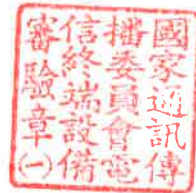 國家通訊傳
播委員會電
信終端設備
審驗章(一)